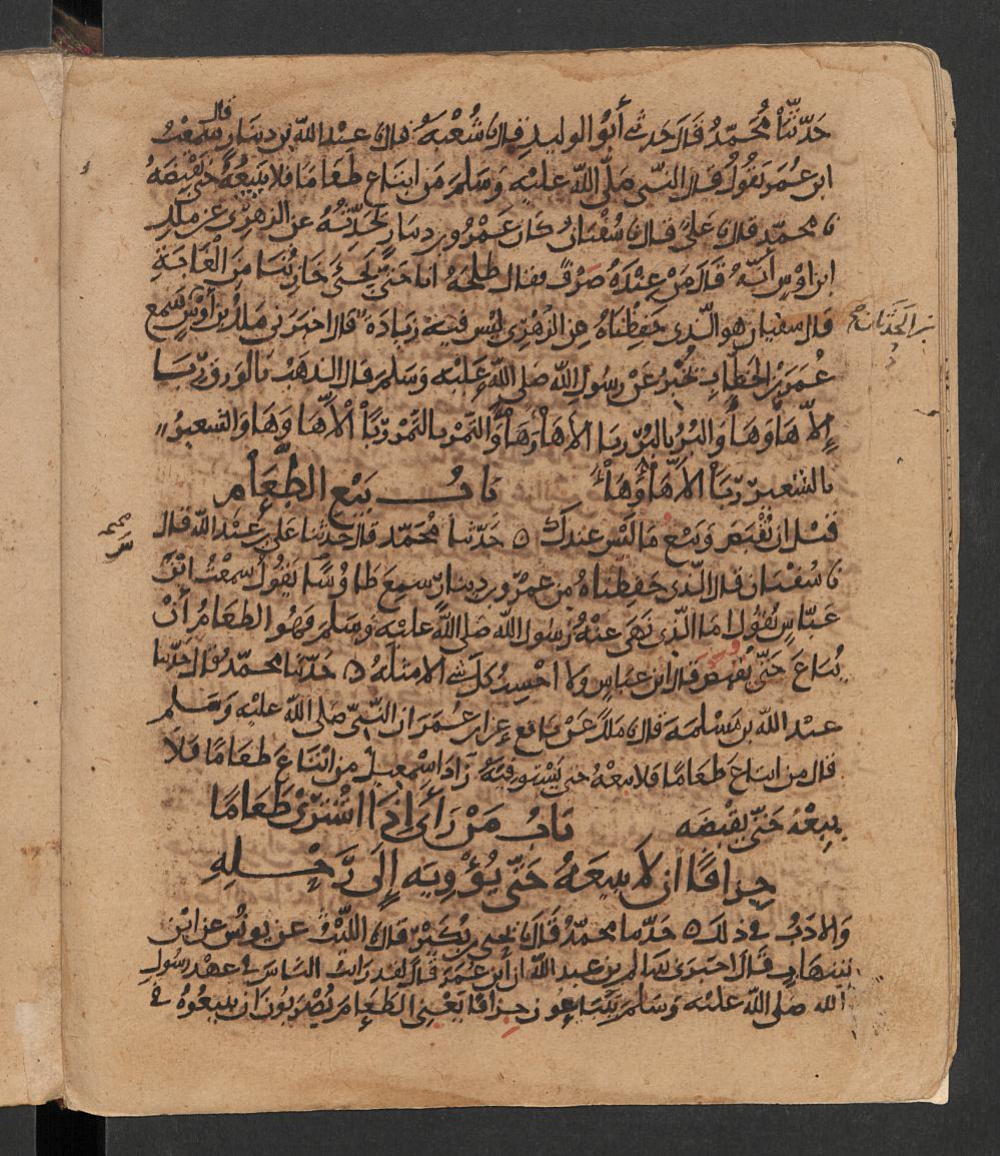 حَدّثنَا مُحَمّدٌ قَالَ حَدثني أَبُو الوليدِ قال نا شُعْبَهُ قال نا عبْد الله بن دينار قال سَمعْتُ
ابن عُمَرَ يَقُولُ قال النبى صَلّى اللّه عليْهِ وَسَلمَ مَن ابتَاع طَعَامًا فلا يَبيْعُهُ حَتى يَقْبِضَهُ
نا محمّد قال نا عَليٌ قال نا سُفْيَانُ كان عَمْرُو بن دينار يُحَدِّثُهُ عن الزهرِى عن مَلِكِ
ابن اوْسٍ أنَّهُ قَالَ مَنْ عِنْدَهُ صَرْفٌ فقال طلحَهُ انا حَتّى يَجئَ خَازِنُنَا مِنَ الْغَابَةِ
قال سفيان هو الّذى حَفِظْنَاهُ مِن الزهْرِى ليْسَ فيهِ زيَادَة قال اخبرَنى مَلكُ بن أوْسٍ سَمع
بن الحَدَثان صح
عُمَرَ بْنَ الخطّابِ يُخْبِرُ عَنْ رسولِ الله صَلى اللّه عَليْه وَسَلمَ قال الذهَبُ بالوَرِق رِبًا
إلاّ هَاْ وَهَاْ وَالبُرُّ بالبُرّ ربا الا هَاْ وَهَاْ وَالتمْر بالتَمْرِ رِبًا الاْ هَا وَهَا وَالشعيرُ
بالشعير رِبَا الاّ هَاْ وَهَاْ باب بَيْع الطَّعَاْمِ
قَبْل ان يُقْبَضَ وَبَيْع مَا لَيْس عندكَ ٥ حَدّثنا مُحَمّد قال حَدثنا عَلي بن عَبْد الله قال
نا سُفْيَان قال الّذى حَفِظناهُ مِن عمْرو بن دينار سمعَ طَاوُسًا يَقُولُ سمعْتُ ابْنَ
عَبّاسٍ يَقُول امَا الّذِى نَهَى عنْهُ رَسُول اللّه صَلى اللّه عليْهِ وَسَلم فهُو الطعَامُ أَنْ
يُبَاعَ حَتّى يُقْبَضَ قال ابن عبّاسٍ ولا احْسِبُ كلّ شيْ الا مثلَهُ ٥ حَدّثنا محمّدٌ قال حَدّثنا
عبْد اللّه بن مَسْلمه قال نا مَلكٌ عَنْ نافع عن ابن عُمَرَ ان النّبيّ صَلى اللّه عليْهِ وَسَلم
قال من ابتاعَ طَعَامًا فلا يبعْهُ حتى يَسْتوفيَهُ زَادَ اسْمعِيلُ من ابْتَاعَ طَعَامًا فَلاَ
يبِعْهُ حَتّى يَقْبِضَه باب مَنْ رَأى اِذَا اشْتَرَى طَعَامًا
جِزافًا ان لاَ يَبيعَهُ حَتّى يُؤْوِيَه إِلَى رَحْلِهِ
وَالادَبُ في ذلك ٥ حَدّثنا محمّدٌ قَالَ نا يَحيى بن بُكَيْر قال نا اللّيْثُ عن يونُس عن ابْن
شهَابٍ قال اخبَرَنى سَالم بن عبد اللّه ان ابن عمَرَ قال لقد رَايتُ الناسَ في عهْد رسُولِ
الله صَلّى اللّه عليْه وَسَلم يَبْتَاعُون جزافًا يَعْنى الطَعَامَ يُضْرَبُونَ ان يبيعُوهُ في